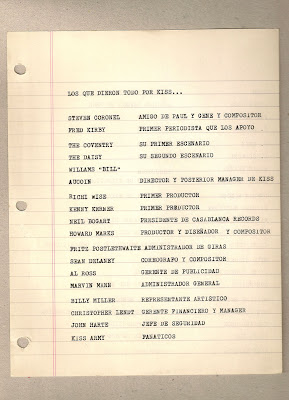 LOS QUE DIERON TODO POR KISS...
STEVEN CORONEL AMIGO DE PAUL Y GENE Y COMPOSITOR
FRED KIRBY PRIMER PERIODISTA QUE LOS APOYO
THE COVENTRY SU PRIMER ESCENARIO
THE DAISY SU SEGUNDO ESCENARIO
WILLAMS "BILL"
AUCOIN DIRECTOR Y POSTERIOR MANAGER DE KISS
RICHI WISE PRIMER PRODUCTOR
KENNY KERNER PRIMER PRODUCTOR
NEIL BOGART PRESIDENTE DE CASABLANCA RECORDS
HOWARD MARKS PRODUCTOR Y DISEÑADOR Y COMPOSITOR
FRITZ POSTLETHWAITE ADMINISTRADOR DE GIRAS
SEAN DELANEY COREOGRAFO Y COMPOSITOR
AL ROSS GERENTE DE PUBLICIDAD
MARVIN MANN ADMINISTRADOR GENERAL
BILLY MILLER REPRESENTANTE ARTISTICO
CHRISTOPHER LENDT GERENTE FINANCIERO Y MANAGER
JOHN HARTE JEFE DE SEGURIDAD
KISS ARMY FANATICOS